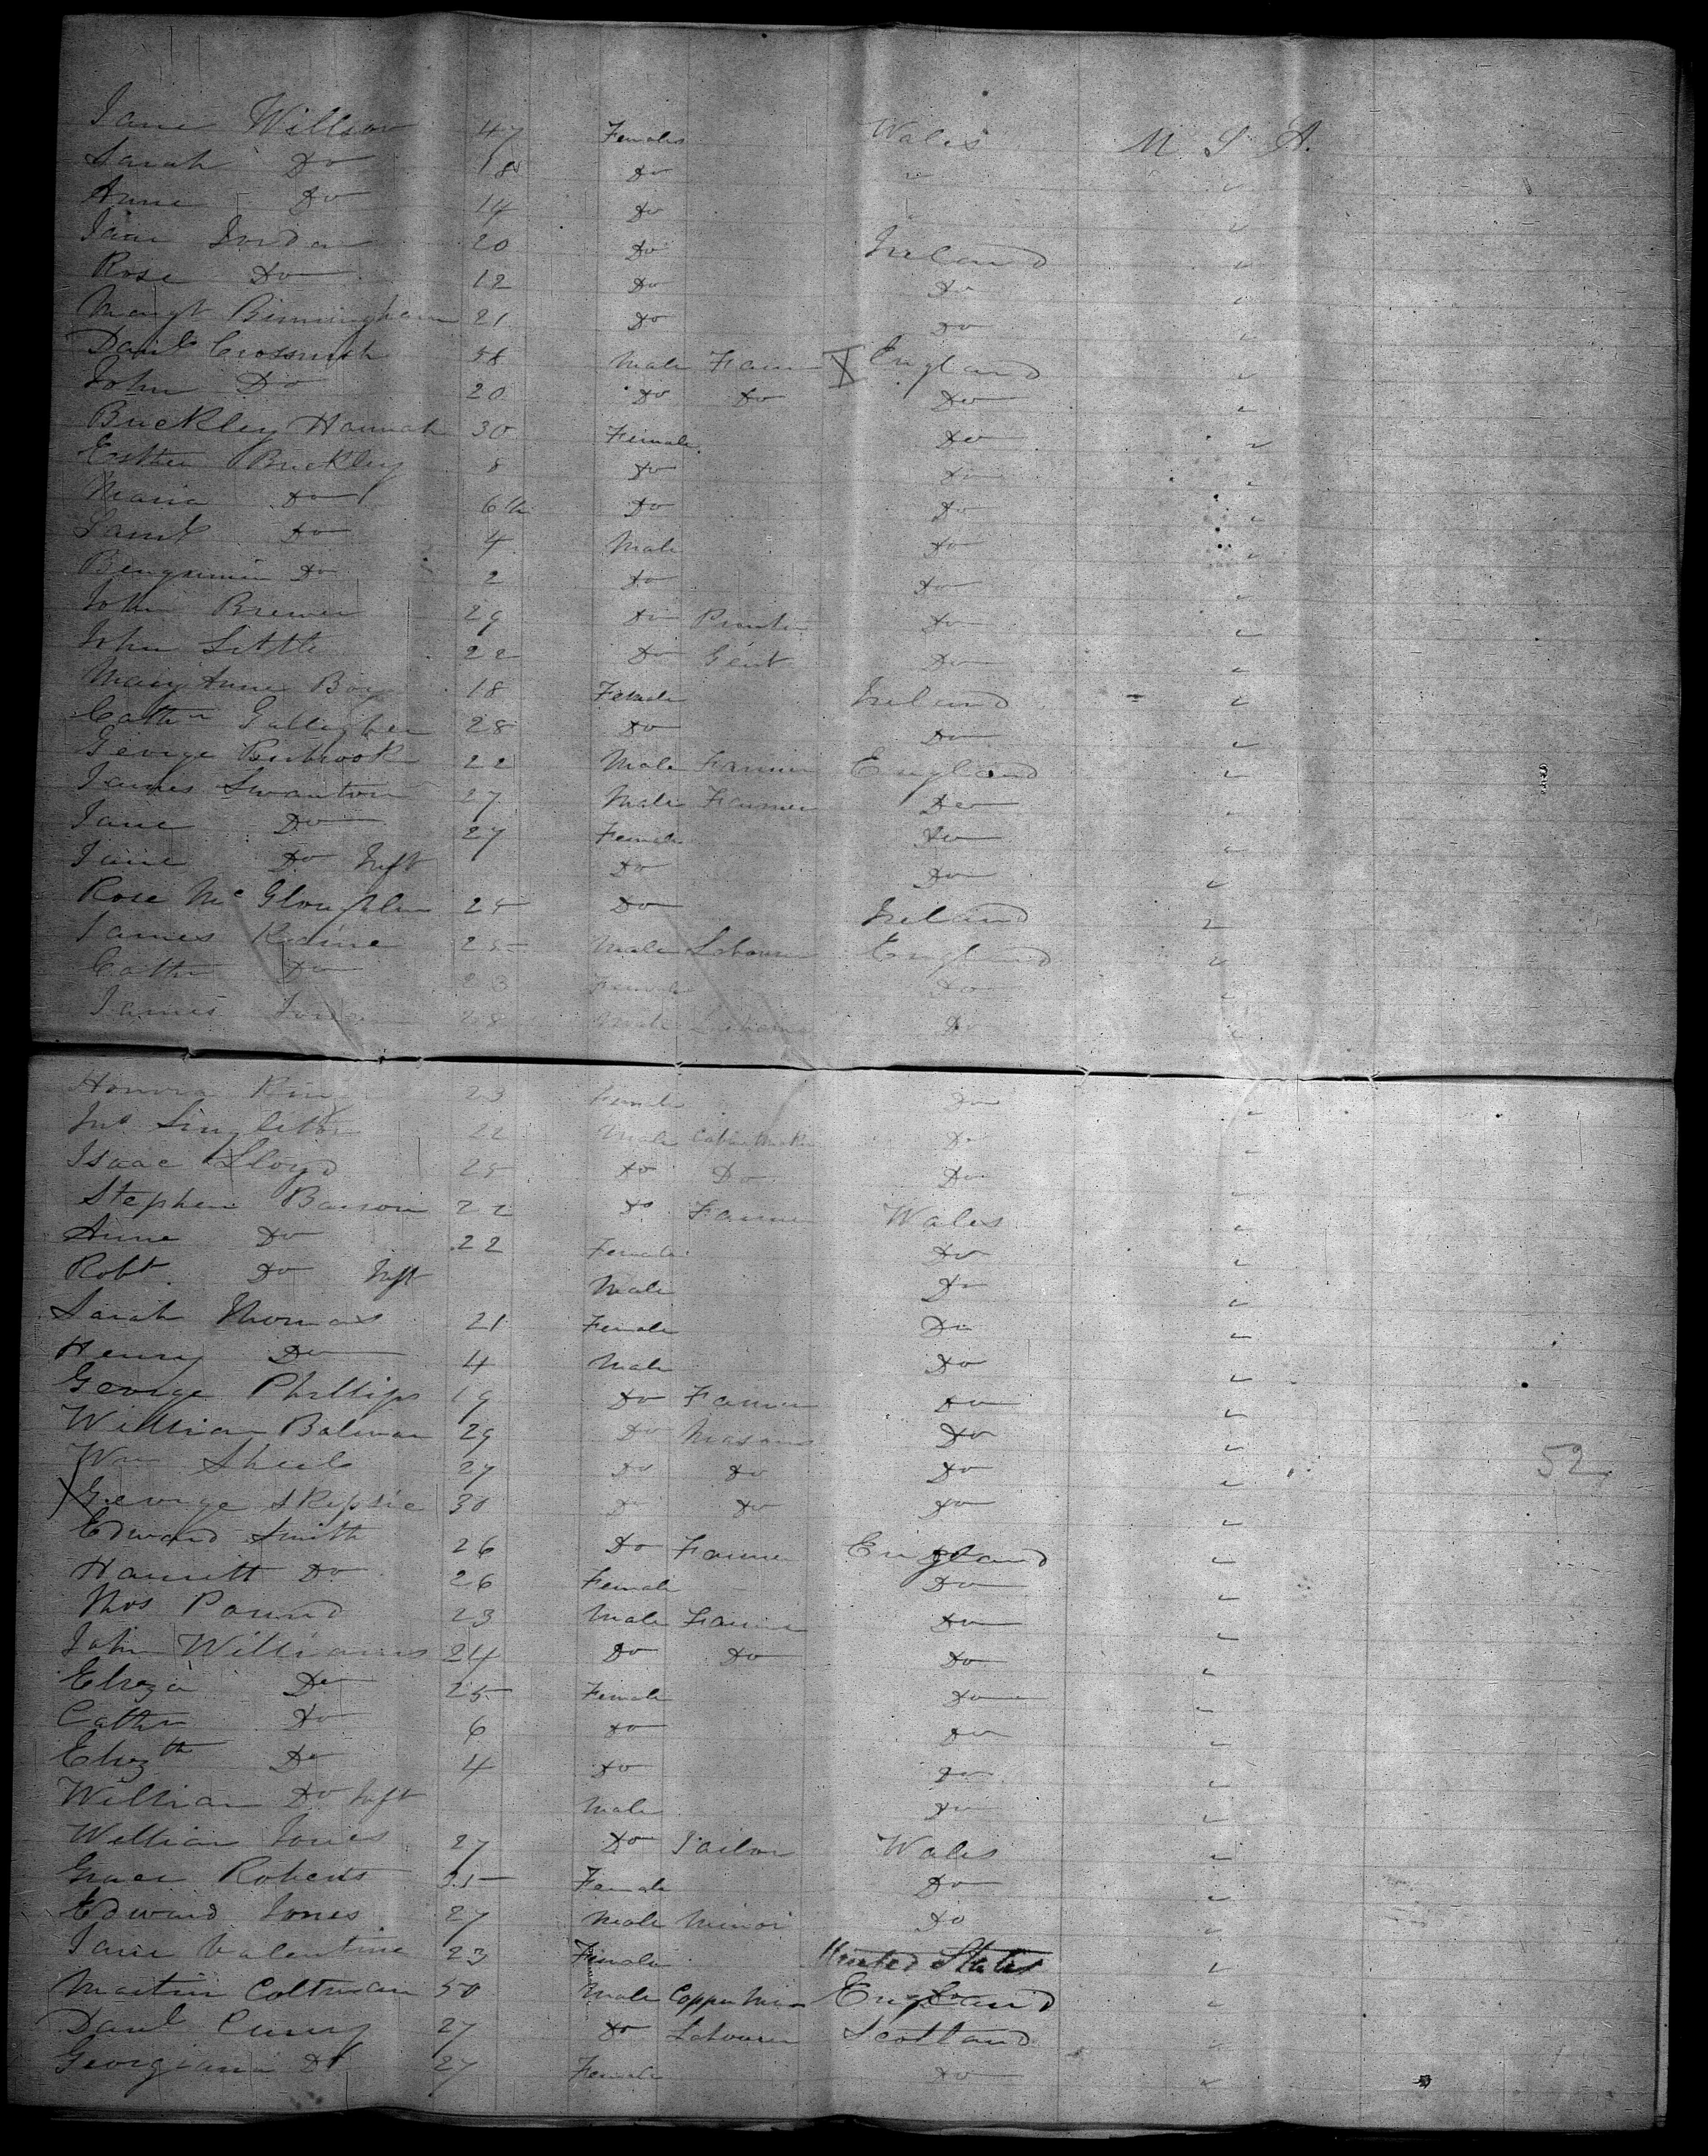 Jane Willson 47 Females Wales U. S. A.
Sarah Do 18 Do " "
Anne Do 14 Do "
Jane Jordan 20 Do Ireland "
Rose Do 12 Do Do "
Margt Birmingham 21 Do Do "
Danl 58 Male Farmer England "
John Do 20 Do Do Do "
Buckley Hannah 30 Female Do "
Esther Buckley 8 Do Do "
Maria Do 6 Do Do "
Saml Do 4 Male Do "
Bengamin Do 2 Do Do "
John Brewer 29 Do Do "
John Little 22 Do Gent Do "
Mary Anne 18 Female Ireland "
Cathn Gallagher 28 Do Do "
George 22 Male Farmer England "
James Swanton 27 Male Farmer Do "
Jane Do 27 Female Do "
Jane Do Inft Do Do "
Rose McGloughlin 25 Do Ireland "
James 25 Male Labourer England "
Cathn Do 23 Female Do "
James 28 Male Do "
Honora 23 Female Do "
Jno Singleton 22 Male Cabinet Maker Do "
Isaac Lloyd 25 Do Do Do "
Stephen 22 Do Farmer Wales "
Anne Do 22 Female Do "
Robt Do Inft Male Do "
Sarah Thomas 21 Female Do "
Henry Do 4 Male Do "
George Phillips 19 Do Farmer Do "
William 29 Do Mason Do "
Wm Sheils 27 Do Do Do " 52
X George Skipsie 30 Do Do Do "
Edward Smith 26 Do Farmer England "
Harriett Do 26 Female Do "
Thos Pound 23 Male Farmer Do "
John Williams 24 Do Do Do "
Eliza Do 25 Female Do "
Cathn Do 6 Do Do "
Elizth Do 4 Do Do "
William Do Inft Male Do "
William Jones 27 Do Tailor Wales "
Grace Roberts Female Do "
Edward Jones 27 Male Minor Do "
Jane Valentine 23 Female United States "
Martin Coltman 50 Male England "
Danl 27 Do Labourer Scotland "
Georgiana Do 27 Female Do "